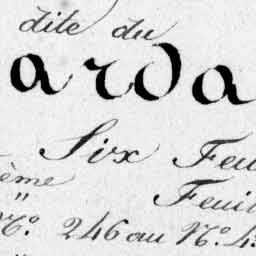 dite du
arda
Six Feu
ème Feuil
" 
N.º 246 au N.º 4